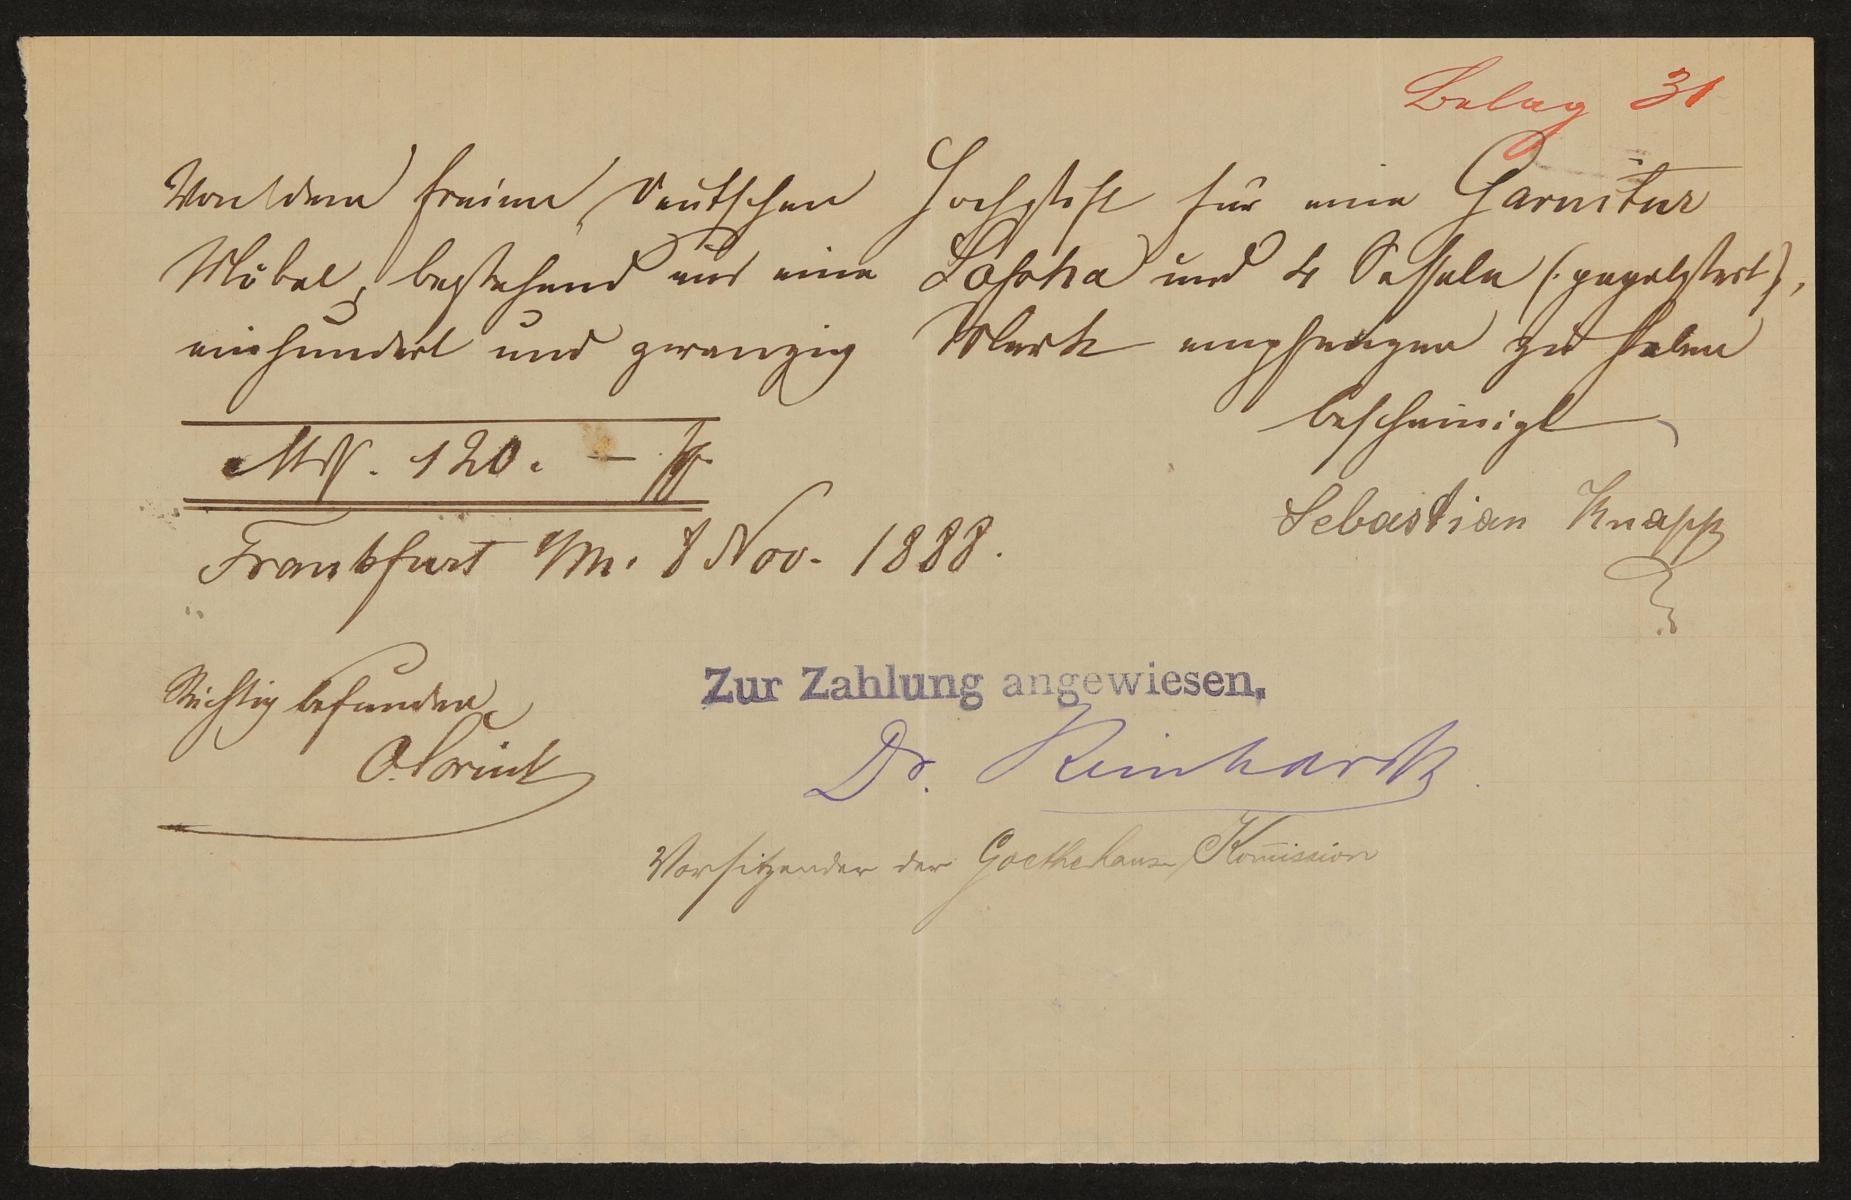 Belag 31
Von dem freien Deutschen Hochstift für eine Garnitur
Möbel, bestehend aus eine Sopha und 4 Sesseln (: gepolstert),
einhundert und zwanzig Mark empfangen zu haben
bescheinigt
Mk. 120. –
Sebastian Knapp
Frankfurt a/M. 8 Nov. 1888.
Richtig befunden
Zur Zahlung angewiesen.
Dr. Reinhardt
Vorsitzender der Goethehaus Kom̄ission